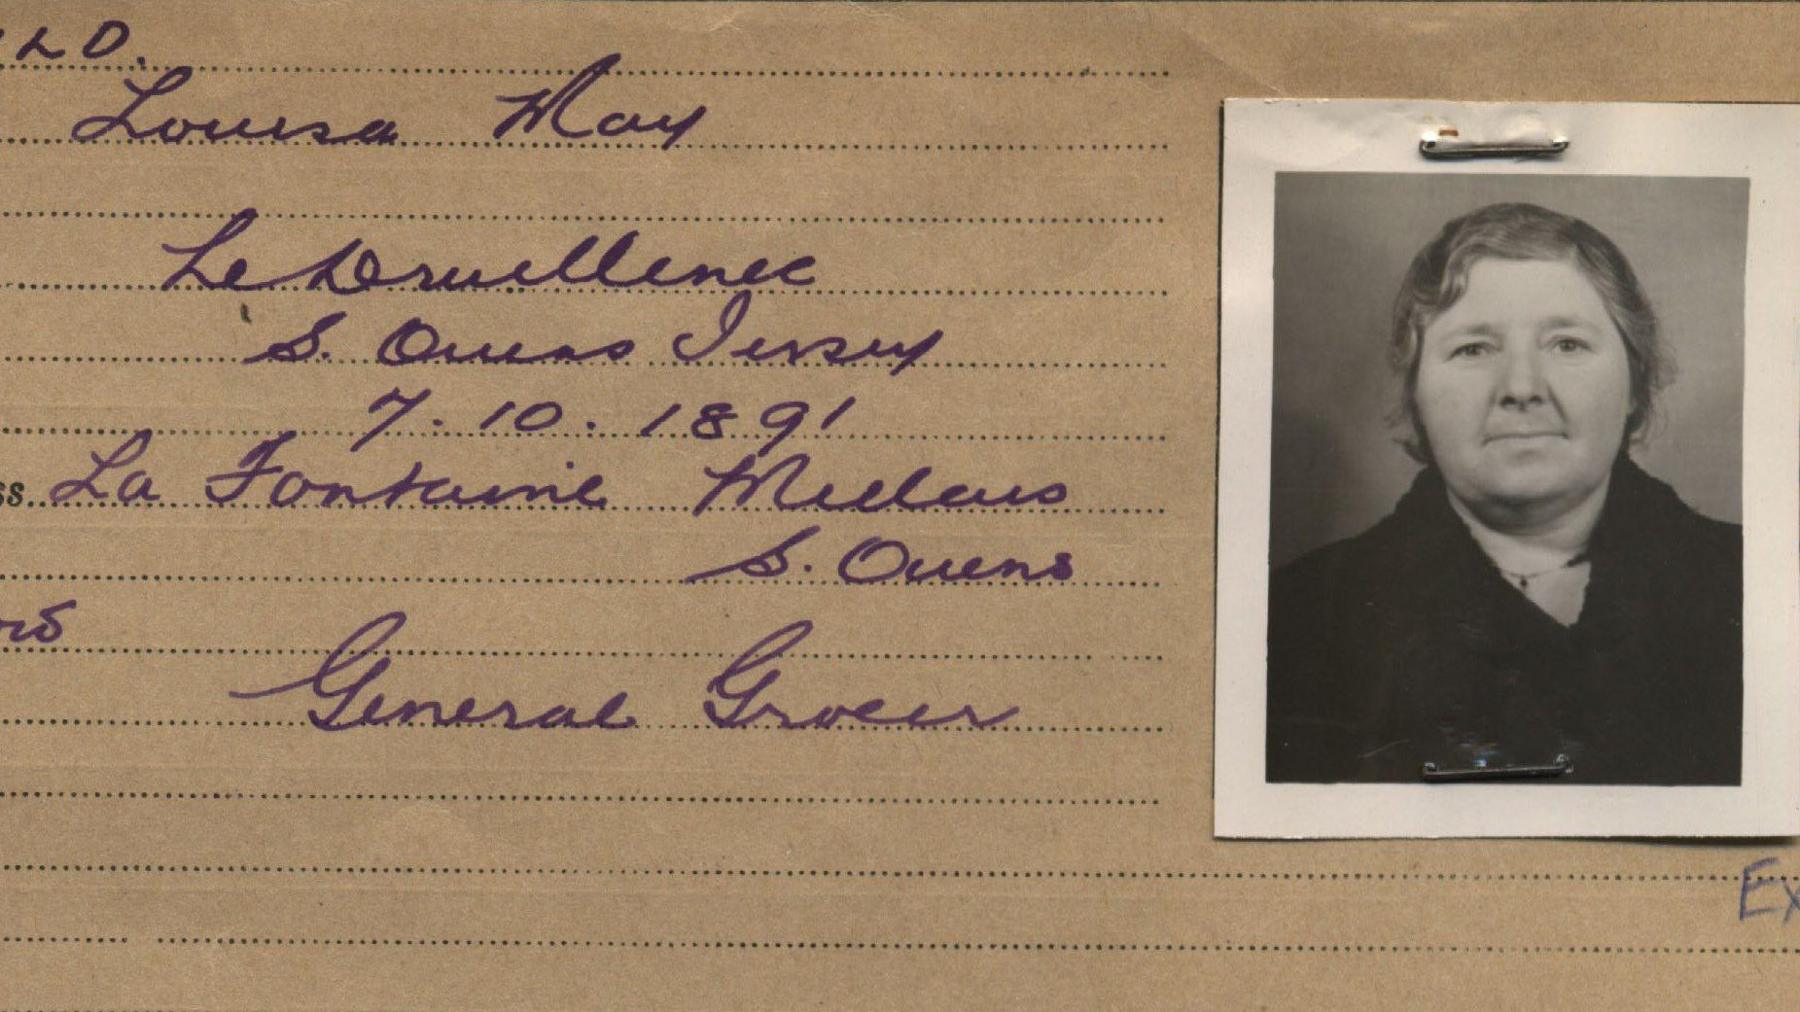 LD.
Louisa May
Le Druillenec
S. Ouens Jersey
7.10.1891
ss La Fontaine Millais
S. Ouens
General Grocer
Ex